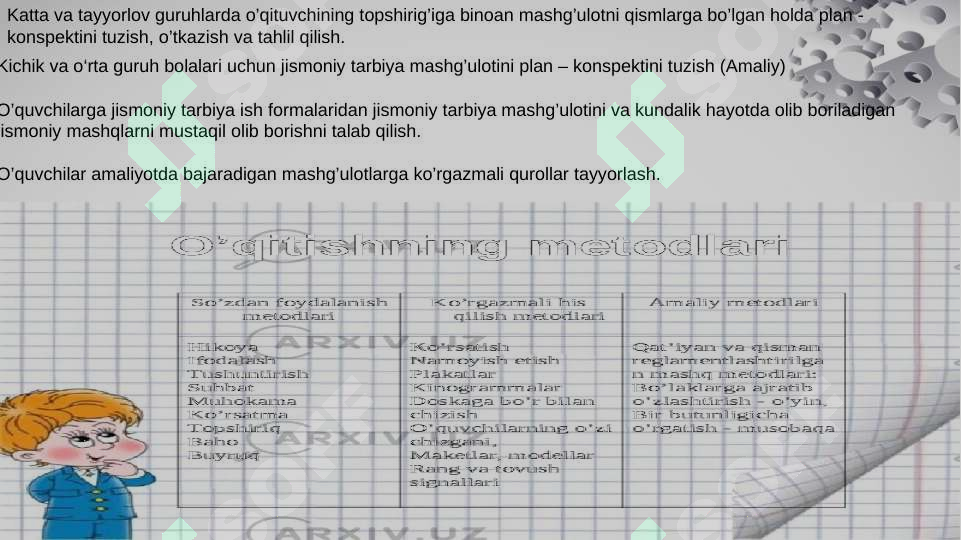 Katta va tayyorlov guruhlarda o’qituvchining topshirig’iga binoan mashg’ulotni qismlarga bo’lgan holda plan -
konspektini tuzish, o’tkazish va tahlil qilish.
Kichik va o‘rta guruh bolalari uchun jismoniy tarbiya mashg’ulotini plan – konspektini tuzish (Amaliy)
O’quvchilarga jismoniy tarbiya ish formalaridan jismoniy tarbiya mashg’ulotini va kundalik hayotda olib boriladigan
jismoniy mashqlarni mustaqil olib borishni talab qilish.
O’quvchilar amaliyotda bajaradigan mashg’ulotlarga ko’rgazmali qurollar tayyorlash.
O’qitishning metodlari
So’zdan foydalanish
metodlari
Hikoya
Ifodalash
Tushuntirish
Suhbat
Muhokama
Ko’rsatma
Topshiriq
Baho
Buyruq
Ko’rgazmali his
qilish metodlari
Ko’rsatish
Namoyish etish
Plakatlar
Kinogrammalar
Doskaga bo’r bilan
chizish
O’quvchilarning o’zi
chizgani,
Maketlar, modellar
Rang va tovush
signallari
Amaliy metodlari
Qat’iyan va qisman
reglamentlashtirilga
n mashq metodlari:
Bo’laklarga ajratib
o’zlashtirish – o’yin,
Bir butunligicha
o’rgatish – musobaqa
ARXIV.UZ